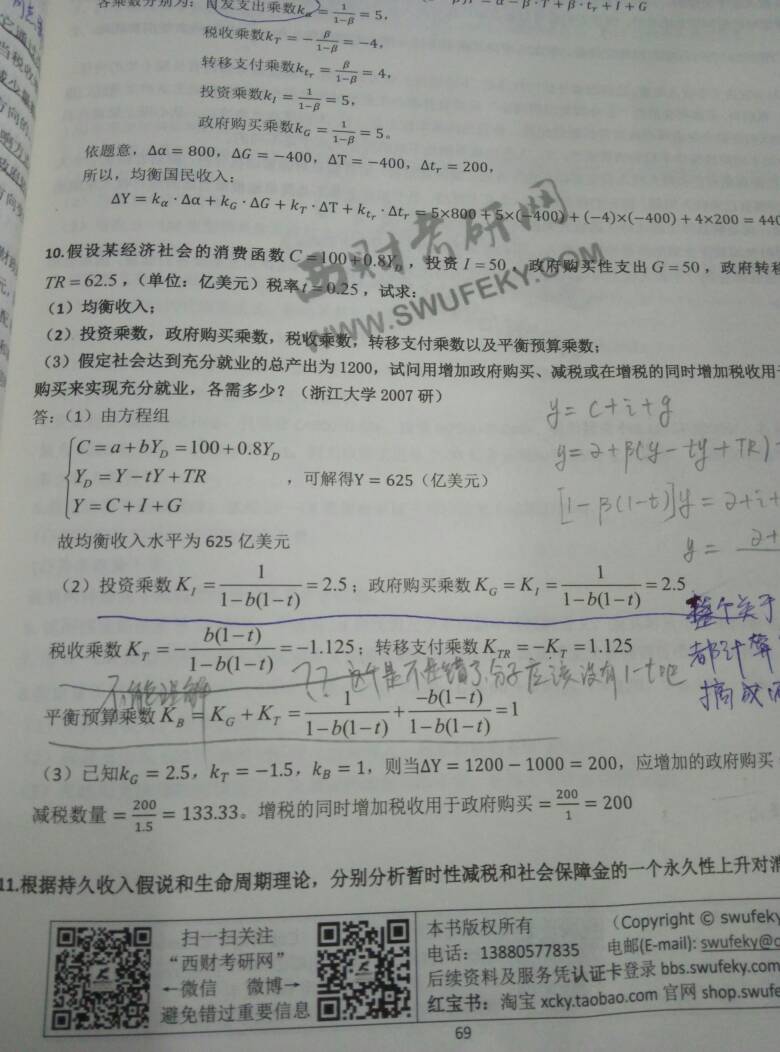 各乘数分别为:自发支出乘数kα = 1/(1−β) = 5,
税收乘数k_T = −β/(1−β) = −4,
转移支付乘数k_{t_r} = β/(1−β) = 4,
投资乘数k_I = 1/(1−β) = 5,
政府购买乘数k_G = 1/(1−β) = 5。
依题意,Δα = 800,ΔG = −400,ΔT = −400,Δt_r = 200,
所以,均衡国民收入:
ΔY = k_α · Δα + k_G · ΔG + k_T · ΔT + k_{t_r} · Δt_r = 5×800 + 5×(−400) + (−4)×(−400) + 4×200 = 440
10.假设某经济社会的消费函数 C = 100 + 0.8Y_D,投资 I = 50,政府购买性支出 G = 50,政府转移
TR = 62.5,(单位:亿美元)税率 t = 0.25,试求:
(1)均衡收入;
(2)投资乘数,政府购买乘数,税收乘数,转移支付乘数以及平衡预算乘数;
(3)假定社会达到充分就业的总产出为 1200,试问用增加政府购买、减税或在增税的同时增加税收用于
购买来实现充分就业,各需多少?(浙江大学 2007 研)
答:(1)由方程组
C = a + bY_D = 100 + 0.8Y_D
Y_D = Y − tY + TR ,可解得Y = 625(亿美元)
Y = C + I + G
y = c + i + g
y = α + β(y − ty + TR) +
[1 − β(1−t)]y = α + i +
y = α +
故均衡收入水平为 625 亿美元
(2)投资乘数 K_I = 1/(1−b(1−t)) = 2.5;政府购买乘数 K_G = K_I = 1/(1−b(1−t)) = 2.5
整个关于
都计算
搞成
税收乘数 K_T = − b(1−t)/(1−b(1−t)) = −1.125;转移支付乘数 K_TR = −K_T = 1.125
不能理解 ?? 这个是不是错了,分子应该没有1−t吧
平衡预算乘数 K_B = K_G + K_T = 1/(1−b(1−t)) + −b(1−t)/(1−b(1−t)) = 1
(3)已知k_G = 2.5,k_T = −1.5,k_B = 1,则当ΔY = 1200 − 1000 = 200,应增加的政府购买
减税数量 = 200/1.5 = 133.33。增税的同时增加税收用于政府购买 = 200/1 = 200
11.根据持久收入假说和生命周期理论,分别分析暂时性减税和社会保障金的一个永久性上升对消
西财考研网
WWW.SWUFEKY.COM
扫一扫关注
“西财考研网”
←微信 微博→
避免错过重要信息
本书版权所有 (Copyright © swufeky
电话:13880577835 电邮(E-mail): swufeky@
后续资料及服务凭认证卡登录 bbs.swufeky.com
红宝书:淘宝 xcky.taobao.com 官网 shop.swufe
69